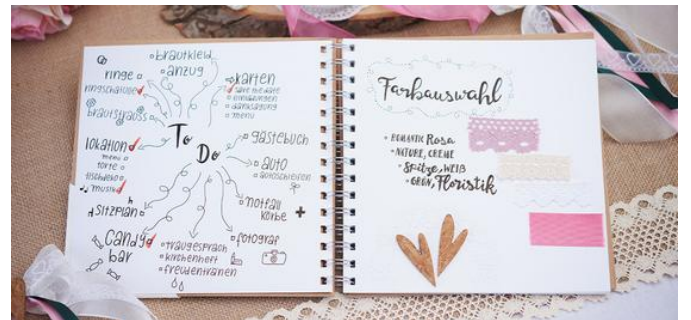 brautkleid
anzug
ringe
ringschatulle
brautstrauss
karten
save the date
einladungen
danksagung
menü
To Do
lokation
menü
torte
tischdeko
musik
sitzplan
candy
bar
gästebuch
auto
autoschleifen
notfall
körbe
fotograf
traugespräch
kirchenheft
freudentränen
Farbauswahl
ROMANTIC Rosa
NATURE, CREME
Spitze, WEIß
GRÜN, Floristik